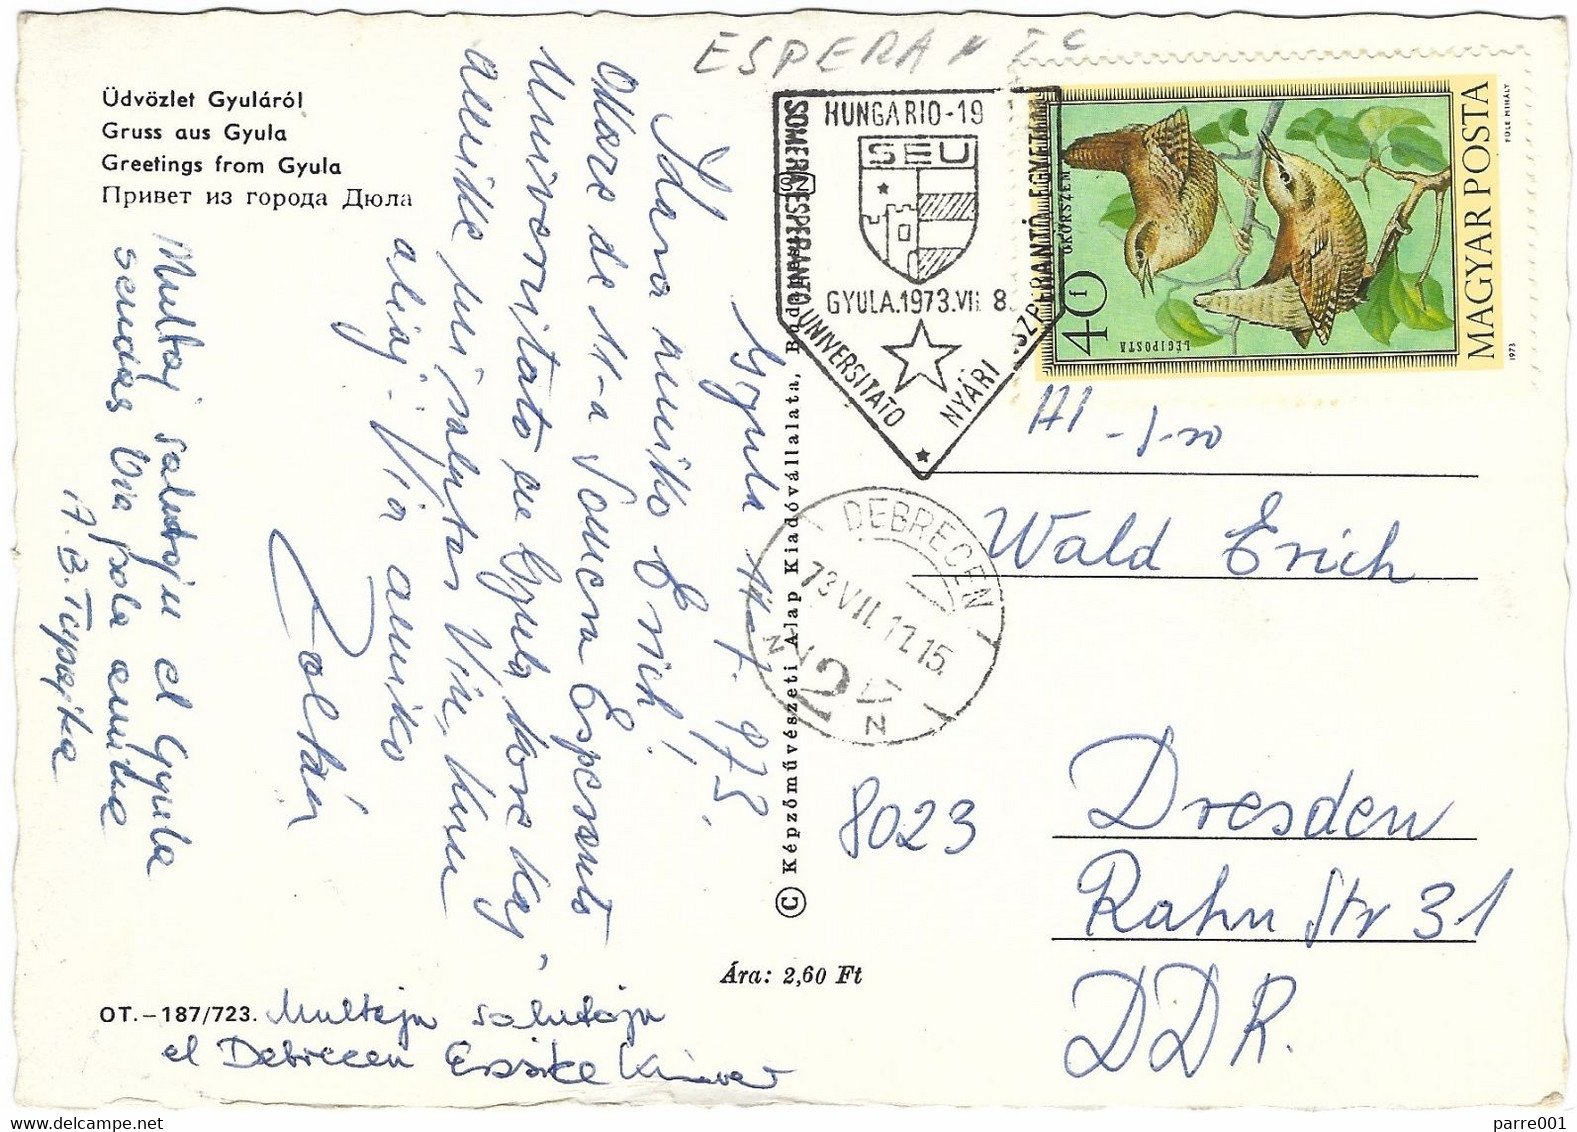 ESPERANTO
Üdvözlet Gyuláról
Gruss aus Gyula
Greetings from Gyula
Привет из города Дюла
HUNGARIO-19
SEU
GYULA.1973.VII 8.
SOMERA ESPERANTO UNIVERSITATO
NYÁRI ESZPERANTÓ EGYETEM
40 f
ÖKÖRSZEM
LÉGIPOSTA
MAGYAR POSTA
FÜLE MIHÁLY
1973
DEBRECEN
73 VII. 12.15.
2
Gyula 11-7. 973.
Kara amiko Erich!
de 11-a Somera Esperanto
Universitato en Gyula kore kaj
amike mi salutas Vin, kun
aliaj. Via amiko
Zoltán
Multaj salutoju el Gyula
sendas Via pola amika
Multajn salutojn
el Debrecen
© Képzőművészeti Alap Kiadóvállalata, Budapest
Ára: 2,60 Ft
OT.-187/723.
Wald Erich
8023
Dresden
Rahn Str 31
DDR.
parre001